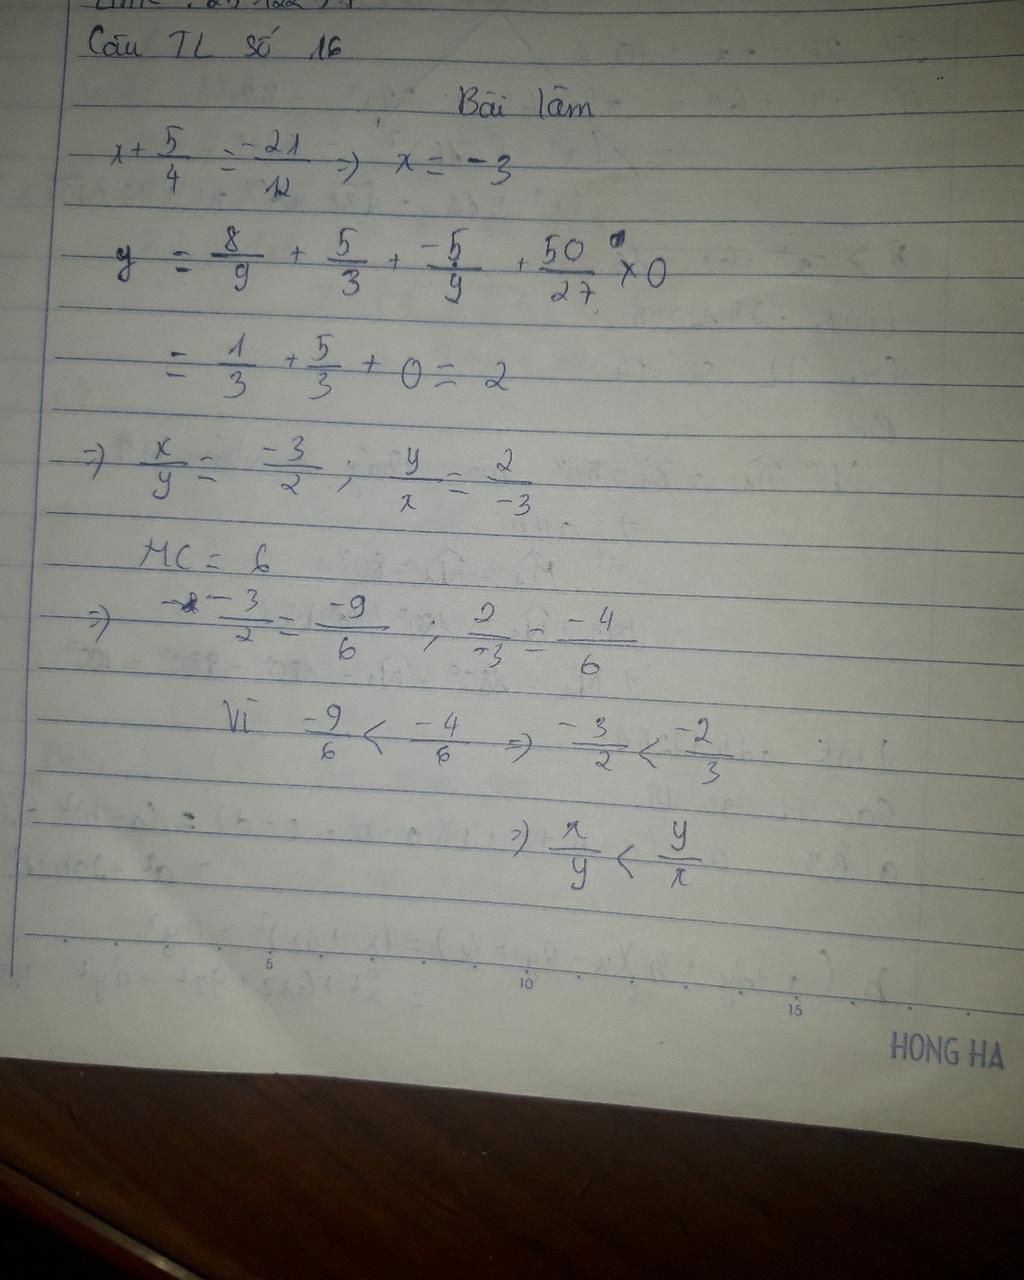 Câu TL số 16
Bài làm
x + 5/4 = -21/12 => x = -3
y = 8/9 + 5/3 + -5/9 + 50/27 × 0
= 1/3 + 5/3 + 0 = 2
=> x/y = -3/2 ; y/x = 2/-3
MC = 6
=> -3/2 = -9/6 ; 2/-3 = -4/6
Vì -9/6 < -4/6 => -3/2 < -2/3
=> x/y < y/x
5 10 15
HONG HA